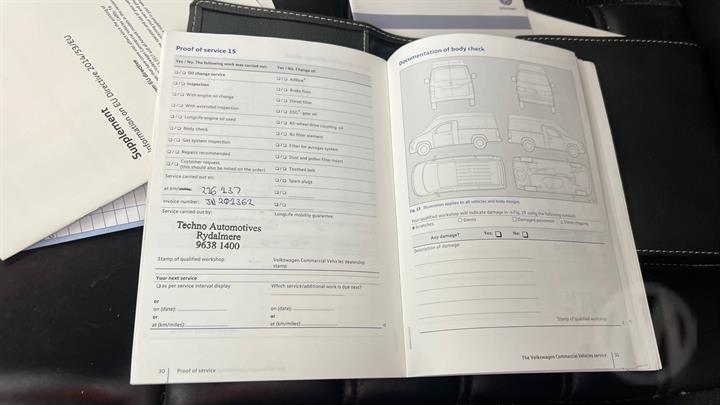 Supplement
Information on EU Directive 2014/53/EU
Proof of service 15
Yes / No. The following work was carried out:
Yes / No. Change of:
❑/❑ Oil change service
❑/❑ AdBlue®
❑/❑ Inspection
❑/❑ Brake fluid
❑/❑ With engine oil change
❑/❑ Diesel filter
❑/❑ With extended inspection
❑/❑ DSG® gear oil
❑/❑ LongLife engine oil used
❑/❑ All-wheel drive coupling oil
❑/❑ Body check
❑/❑ Air filter element
❑/❑ Gas system inspection
❑/❑ Filter for autogas system
❑/❑ Repairs recommended
❑/❑ Dust and pollen filter insert
❑/❑ Customer request
(this should also be noted on the order)
❑/❑ Toothed belt
❑/❑ Spark plugs
❑/❑
❑/❑
Service carried out on:
at km/miles: 216 137
Invoice number: JN 201362
Service carried out by:
LongLife mobility guarantee:
Techno Automotives
Rydalmere
9638 1400
Stamp of qualified workshop
Volkswagen Commercial Vehicles dealership
stamp
Your next service
❑ as per service interval display
Which service/additional work is due next?
or
on (date):
on (date):
or
or
at (km/miles):
at (km/miles):
30 Proof of service
Documentation of body check
Fig. 19 Illustration applies to all vehicles and body designs.
Your qualified workshop will indicate damage in Fig. 19 using the following symbols:
Scratches
Dents
Damaged paintwork
Stone chipping
Any damage? Yes: ❑ No: ❑
Description of damage:
Stamp of qualified workshop
The Volkswagen Commercial Vehicles service 31